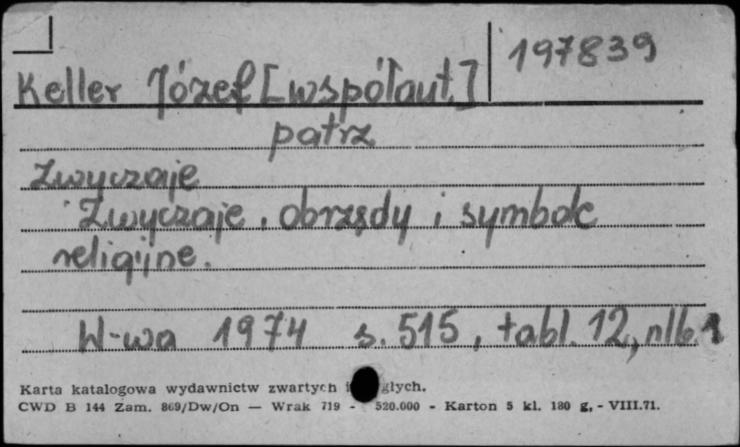 197839
Keller Józef [współaut.]
patrz
Zwyczaje
Zwyczaje, obrzędy i symbole
religijne.
W-wa 1974 s. 515, tabl. 12, nlb. 1
Karta katalogowa wydawnictw zwartych i głych.
CWD B 144 Zam. 869/Dw/On — Wrak 719 - 520.000 - Karton 5 kl. 180 g, - VIII.71.